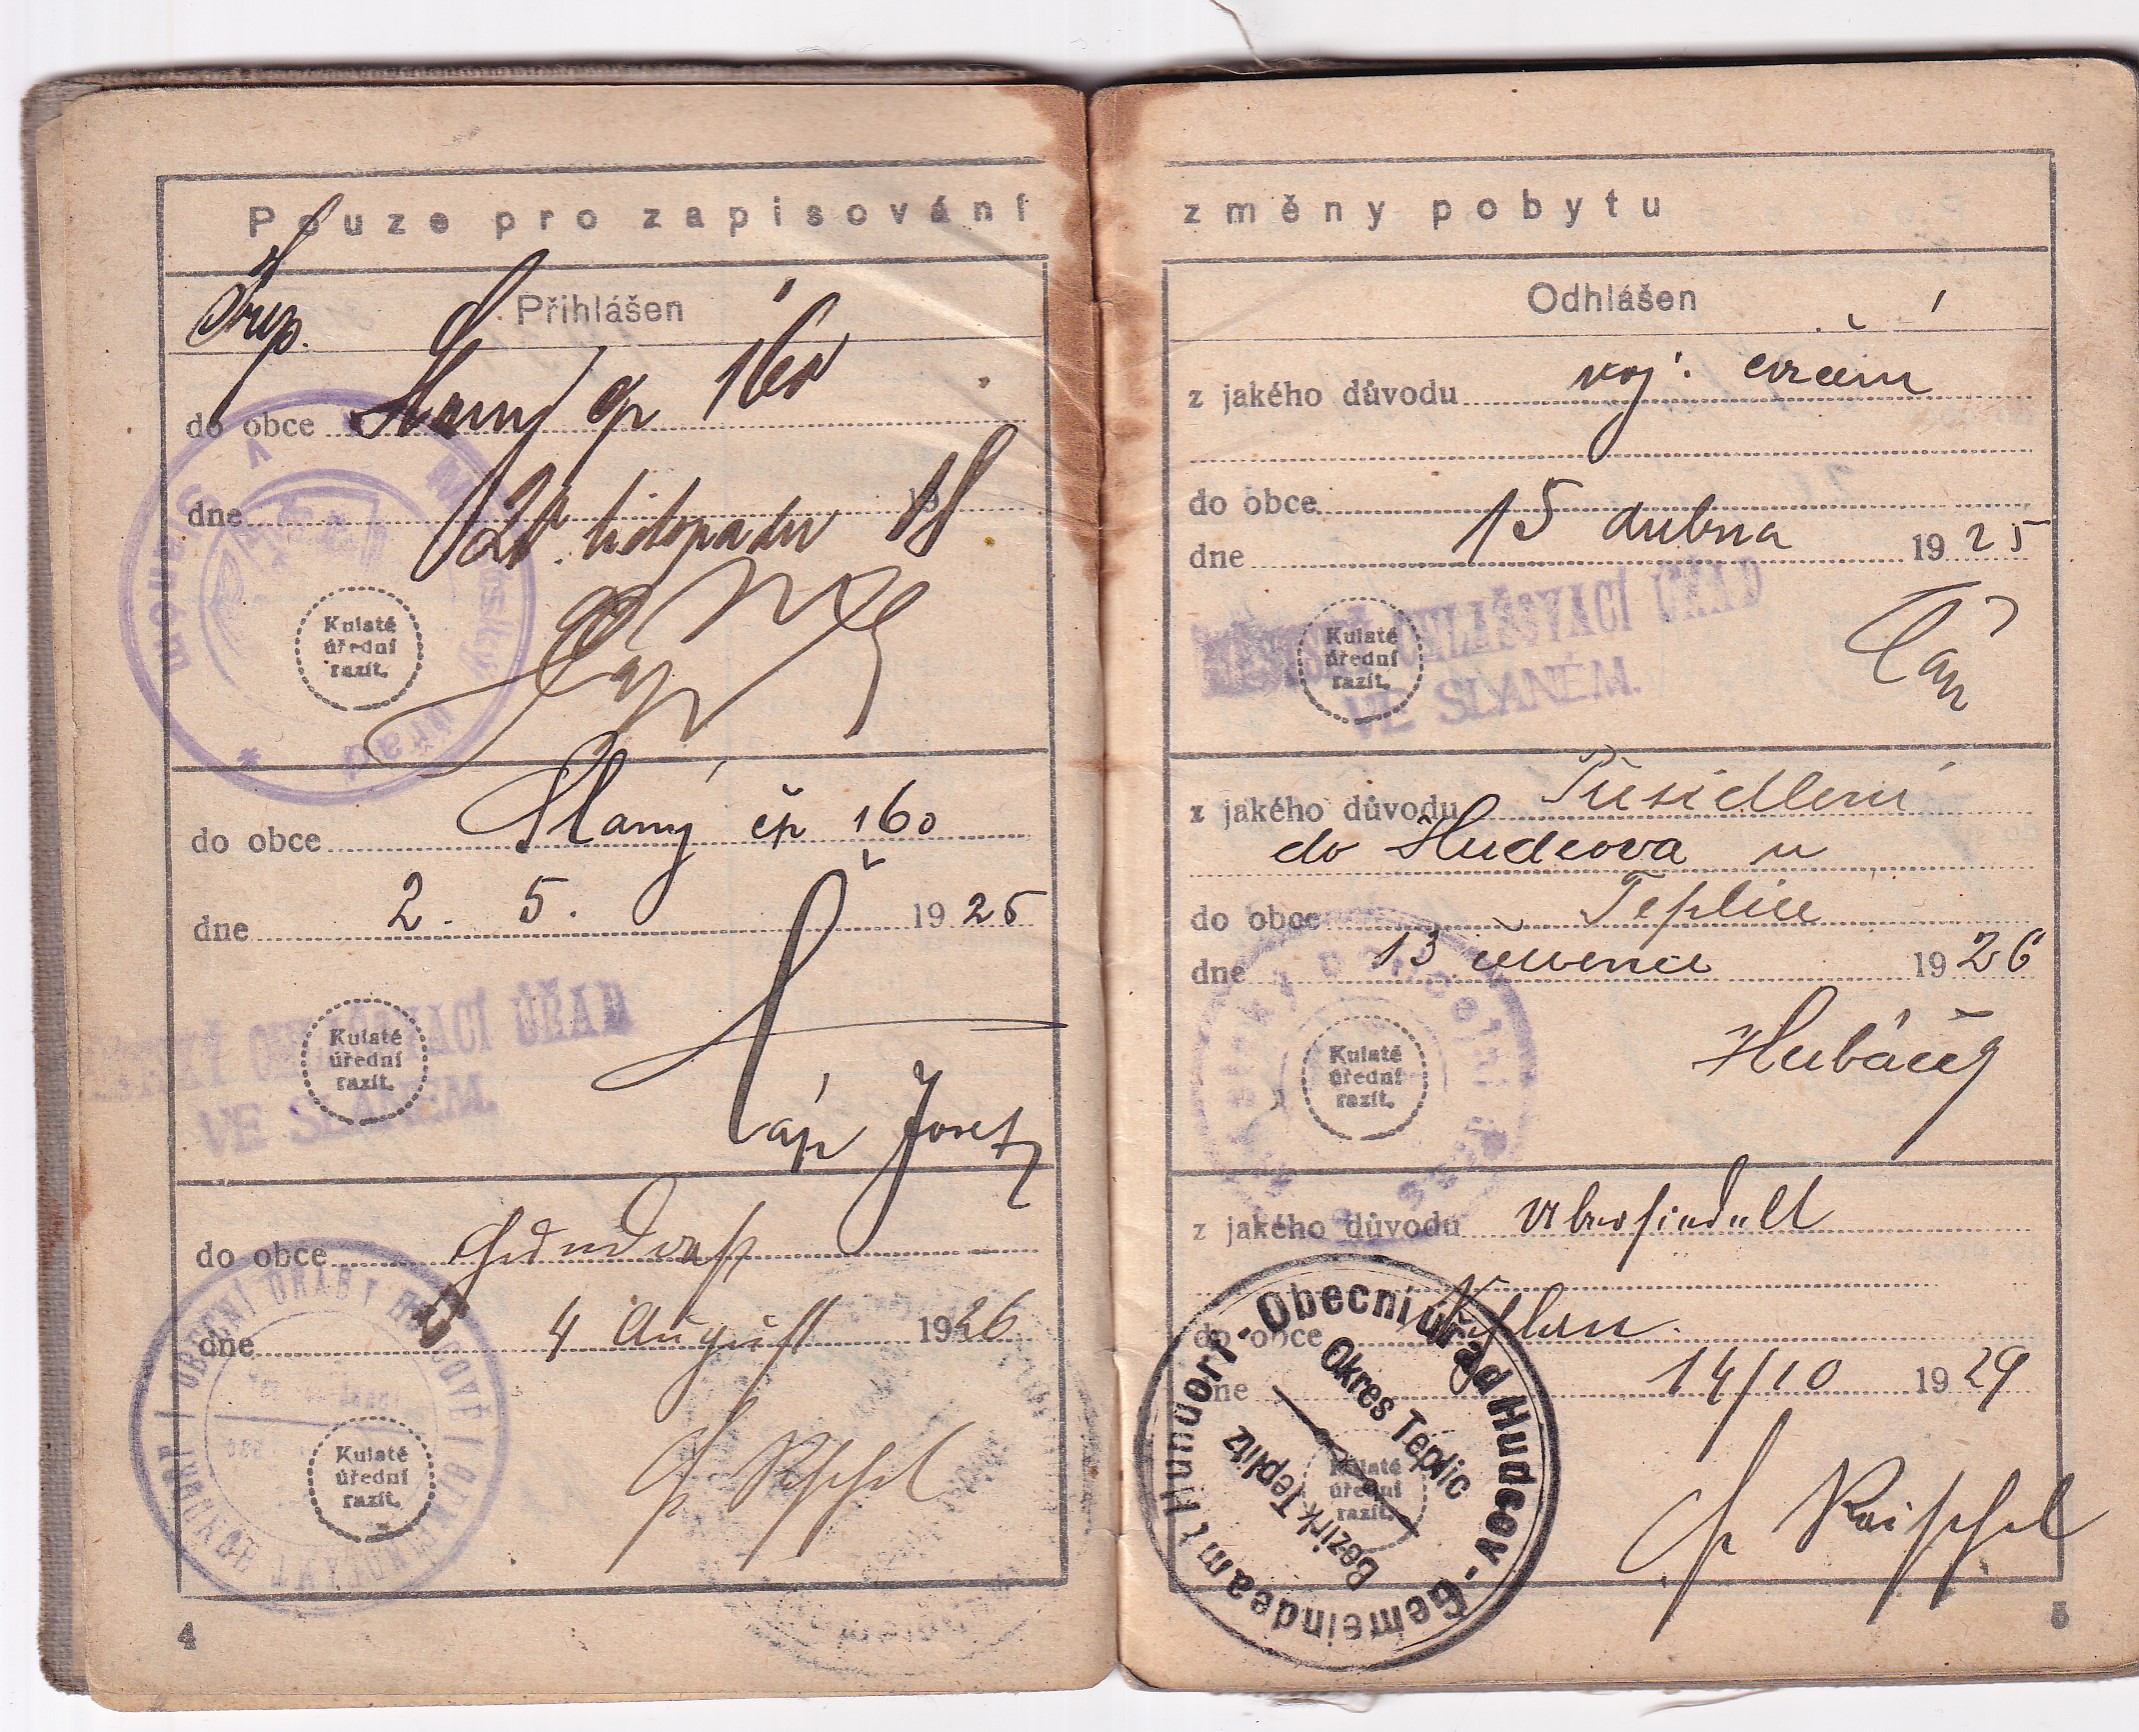 Pouze pro zapisování změny pobytu
Přihlášen
do obce Slaný čp 160
dne listopadu 19 18
Kulaté
úřední
razít.
do obce Slaný čp 160
dne 2. 5. 1925
OHLAŠOVACÍ ÚŘAD
VE SLANÉM.
Kulaté
úřední
razít.
Čáp Josef
do obce Hundorf
dne 4 August 1926
OBECNÍ ÚŘAD
Kulaté
úřední
razít.
4
Odhlášen
z jakého důvodu voj. cvičení
do obce
dne 15 dubna 1925
MĚSTSKÝ OHLAŠOVACÍ ÚŘAD
VE SLANÉM.
Kulaté
úřední
razít.
z jakého důvodu
do Hudcova u
do obce Teplice
dne 13 července 1926
Kulaté
úřední
razít.
Hubáček
z jakého důvodu übersiedelt
do obce
dne 14/10 1929
Obecní úřad Hudcov - Gemeindeamt Hundorf -
Okres Teplic
Bezirk Teplitz
Kulaté
úřední
razít.
5